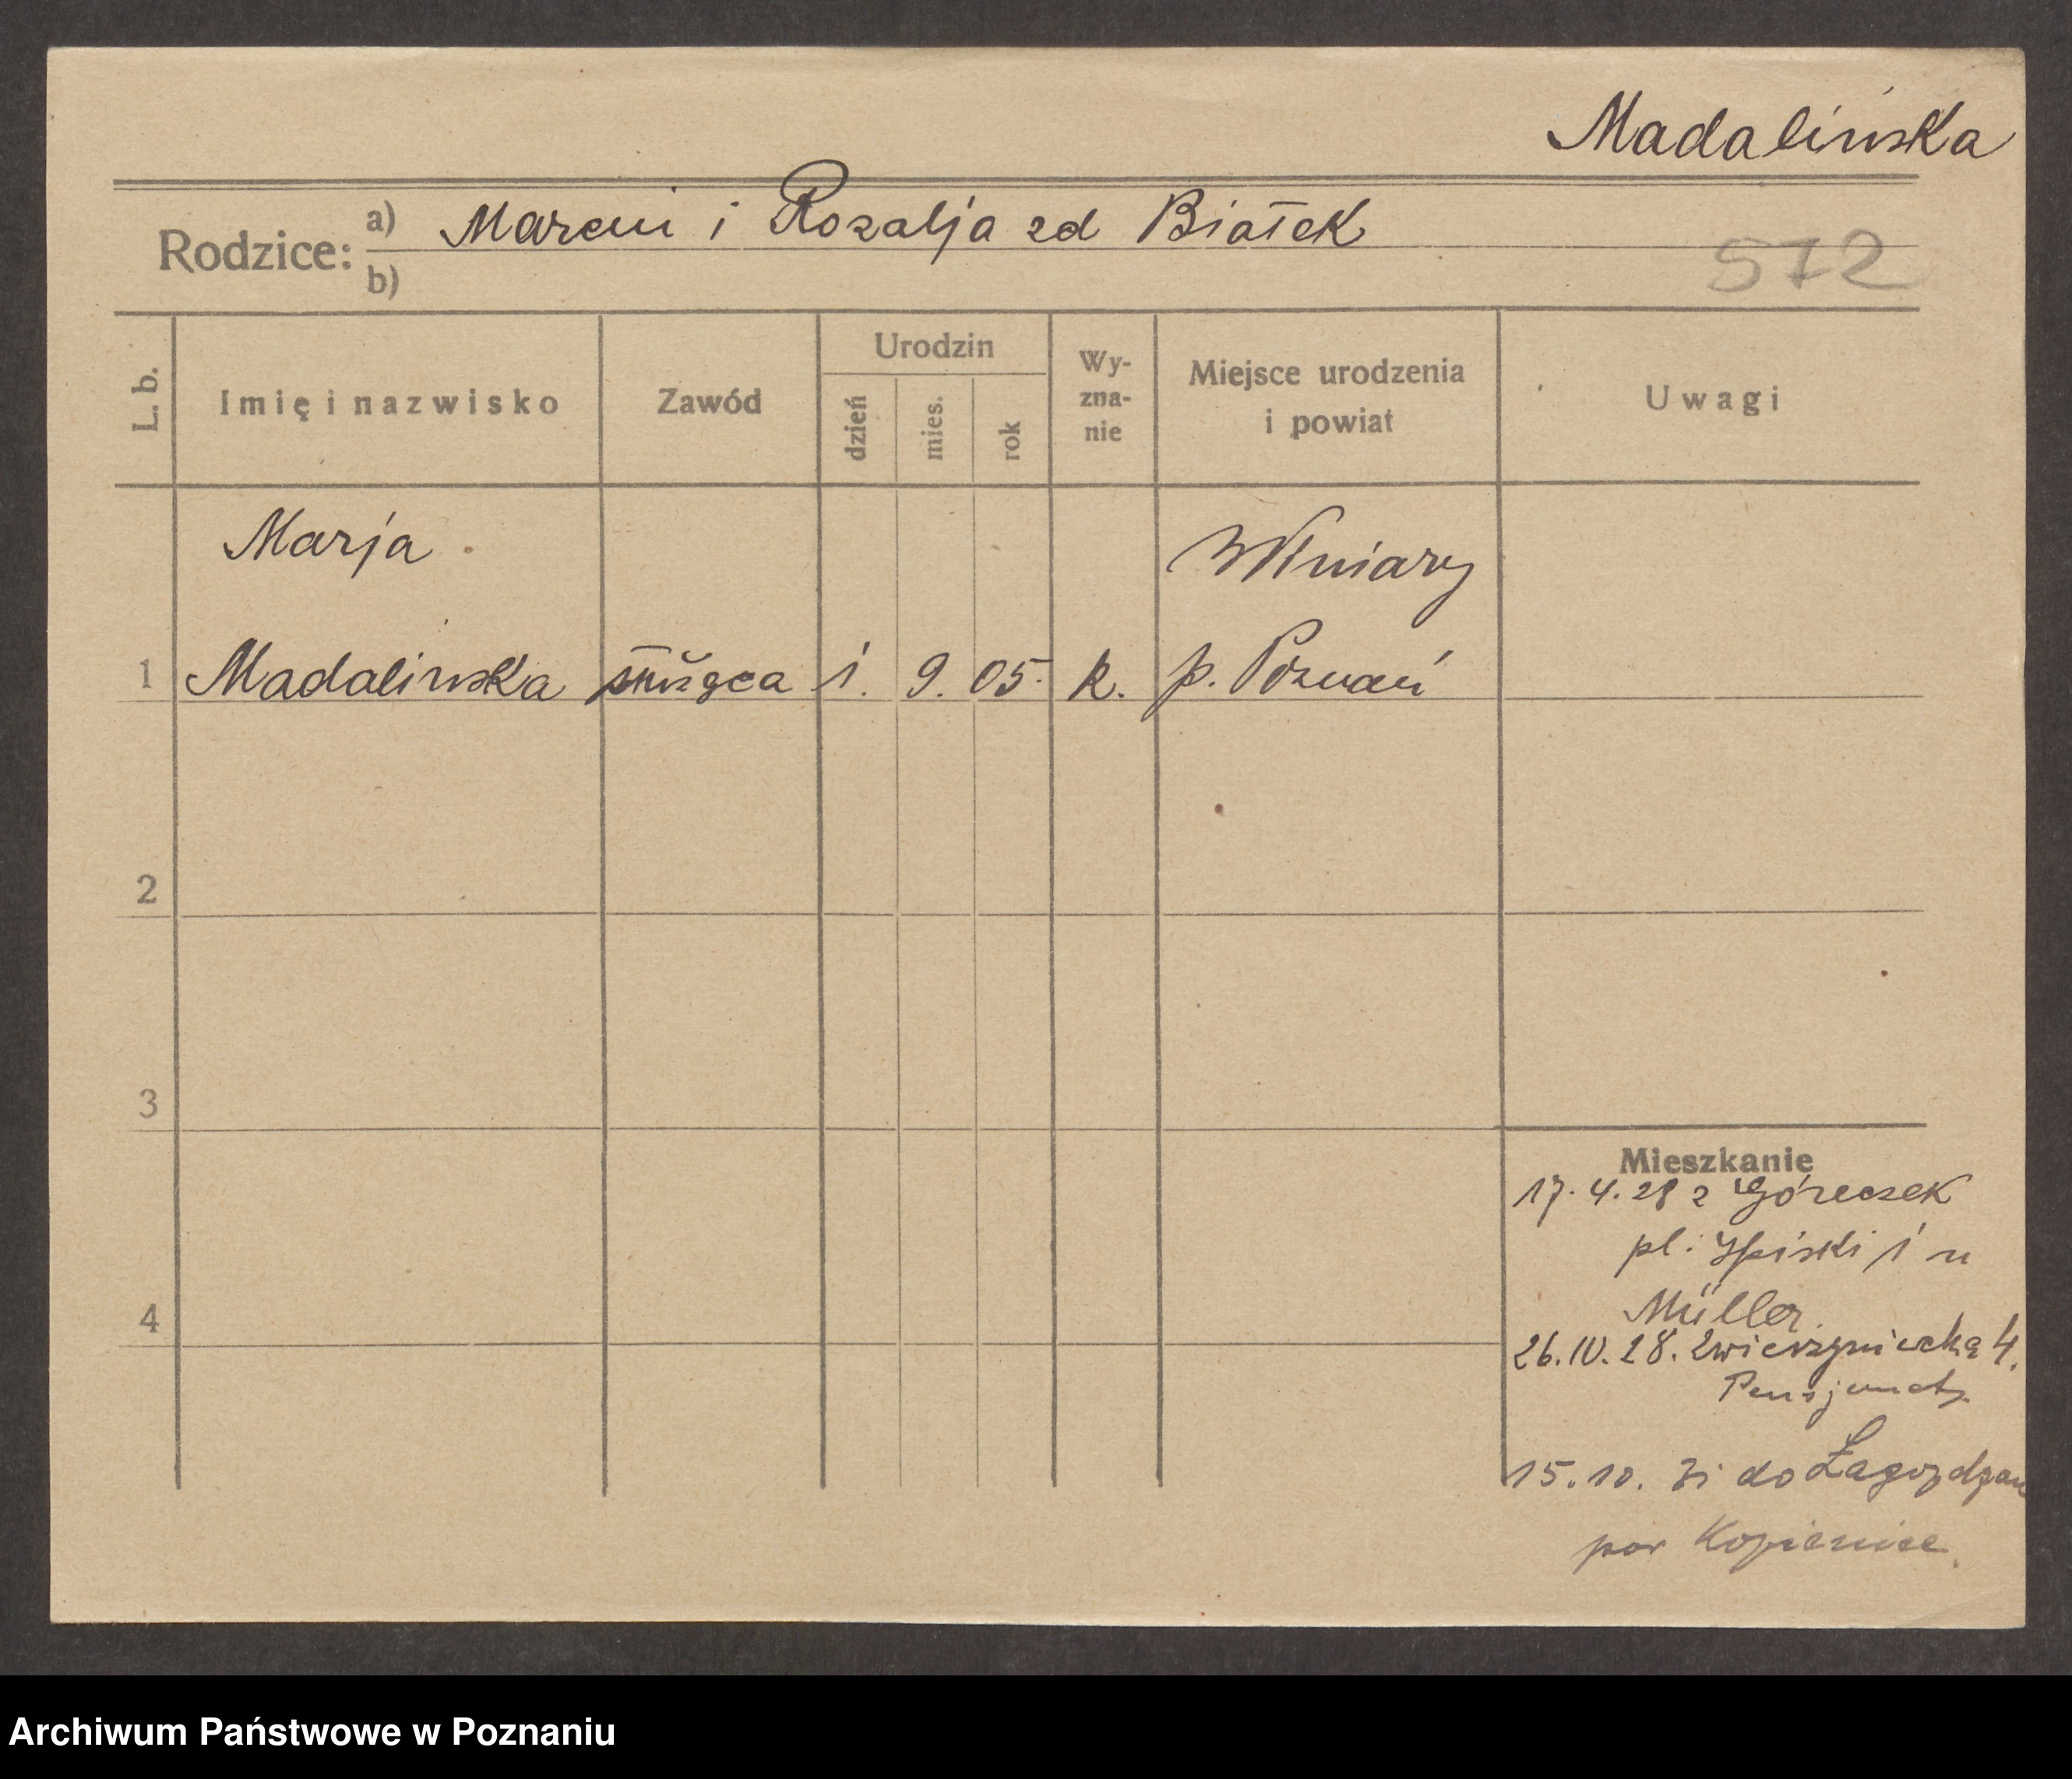 Madalińska
Rodzice: a) Marcin i Rozalja zd Białek
b)
572
L. b.
Imię i nazwisko
Zawód
Urodzin
dzień
mies.
rok
Wy-
zna-
nie
Miejsce urodzenia
i powiat
Uwagi
Marja Winiary
1 Madalińska służąca 1. 9. 05. k. p. Poznań
2
3
4
Mieszkanie
17. 4. 28 z Góreczek
pl. Spiski 1 u
Müller.
26. IV. 28. Zwierzyniecka 4.
Pensjonat
15. 10. 31 do
pow
Archiwum Państwowe w Poznaniu